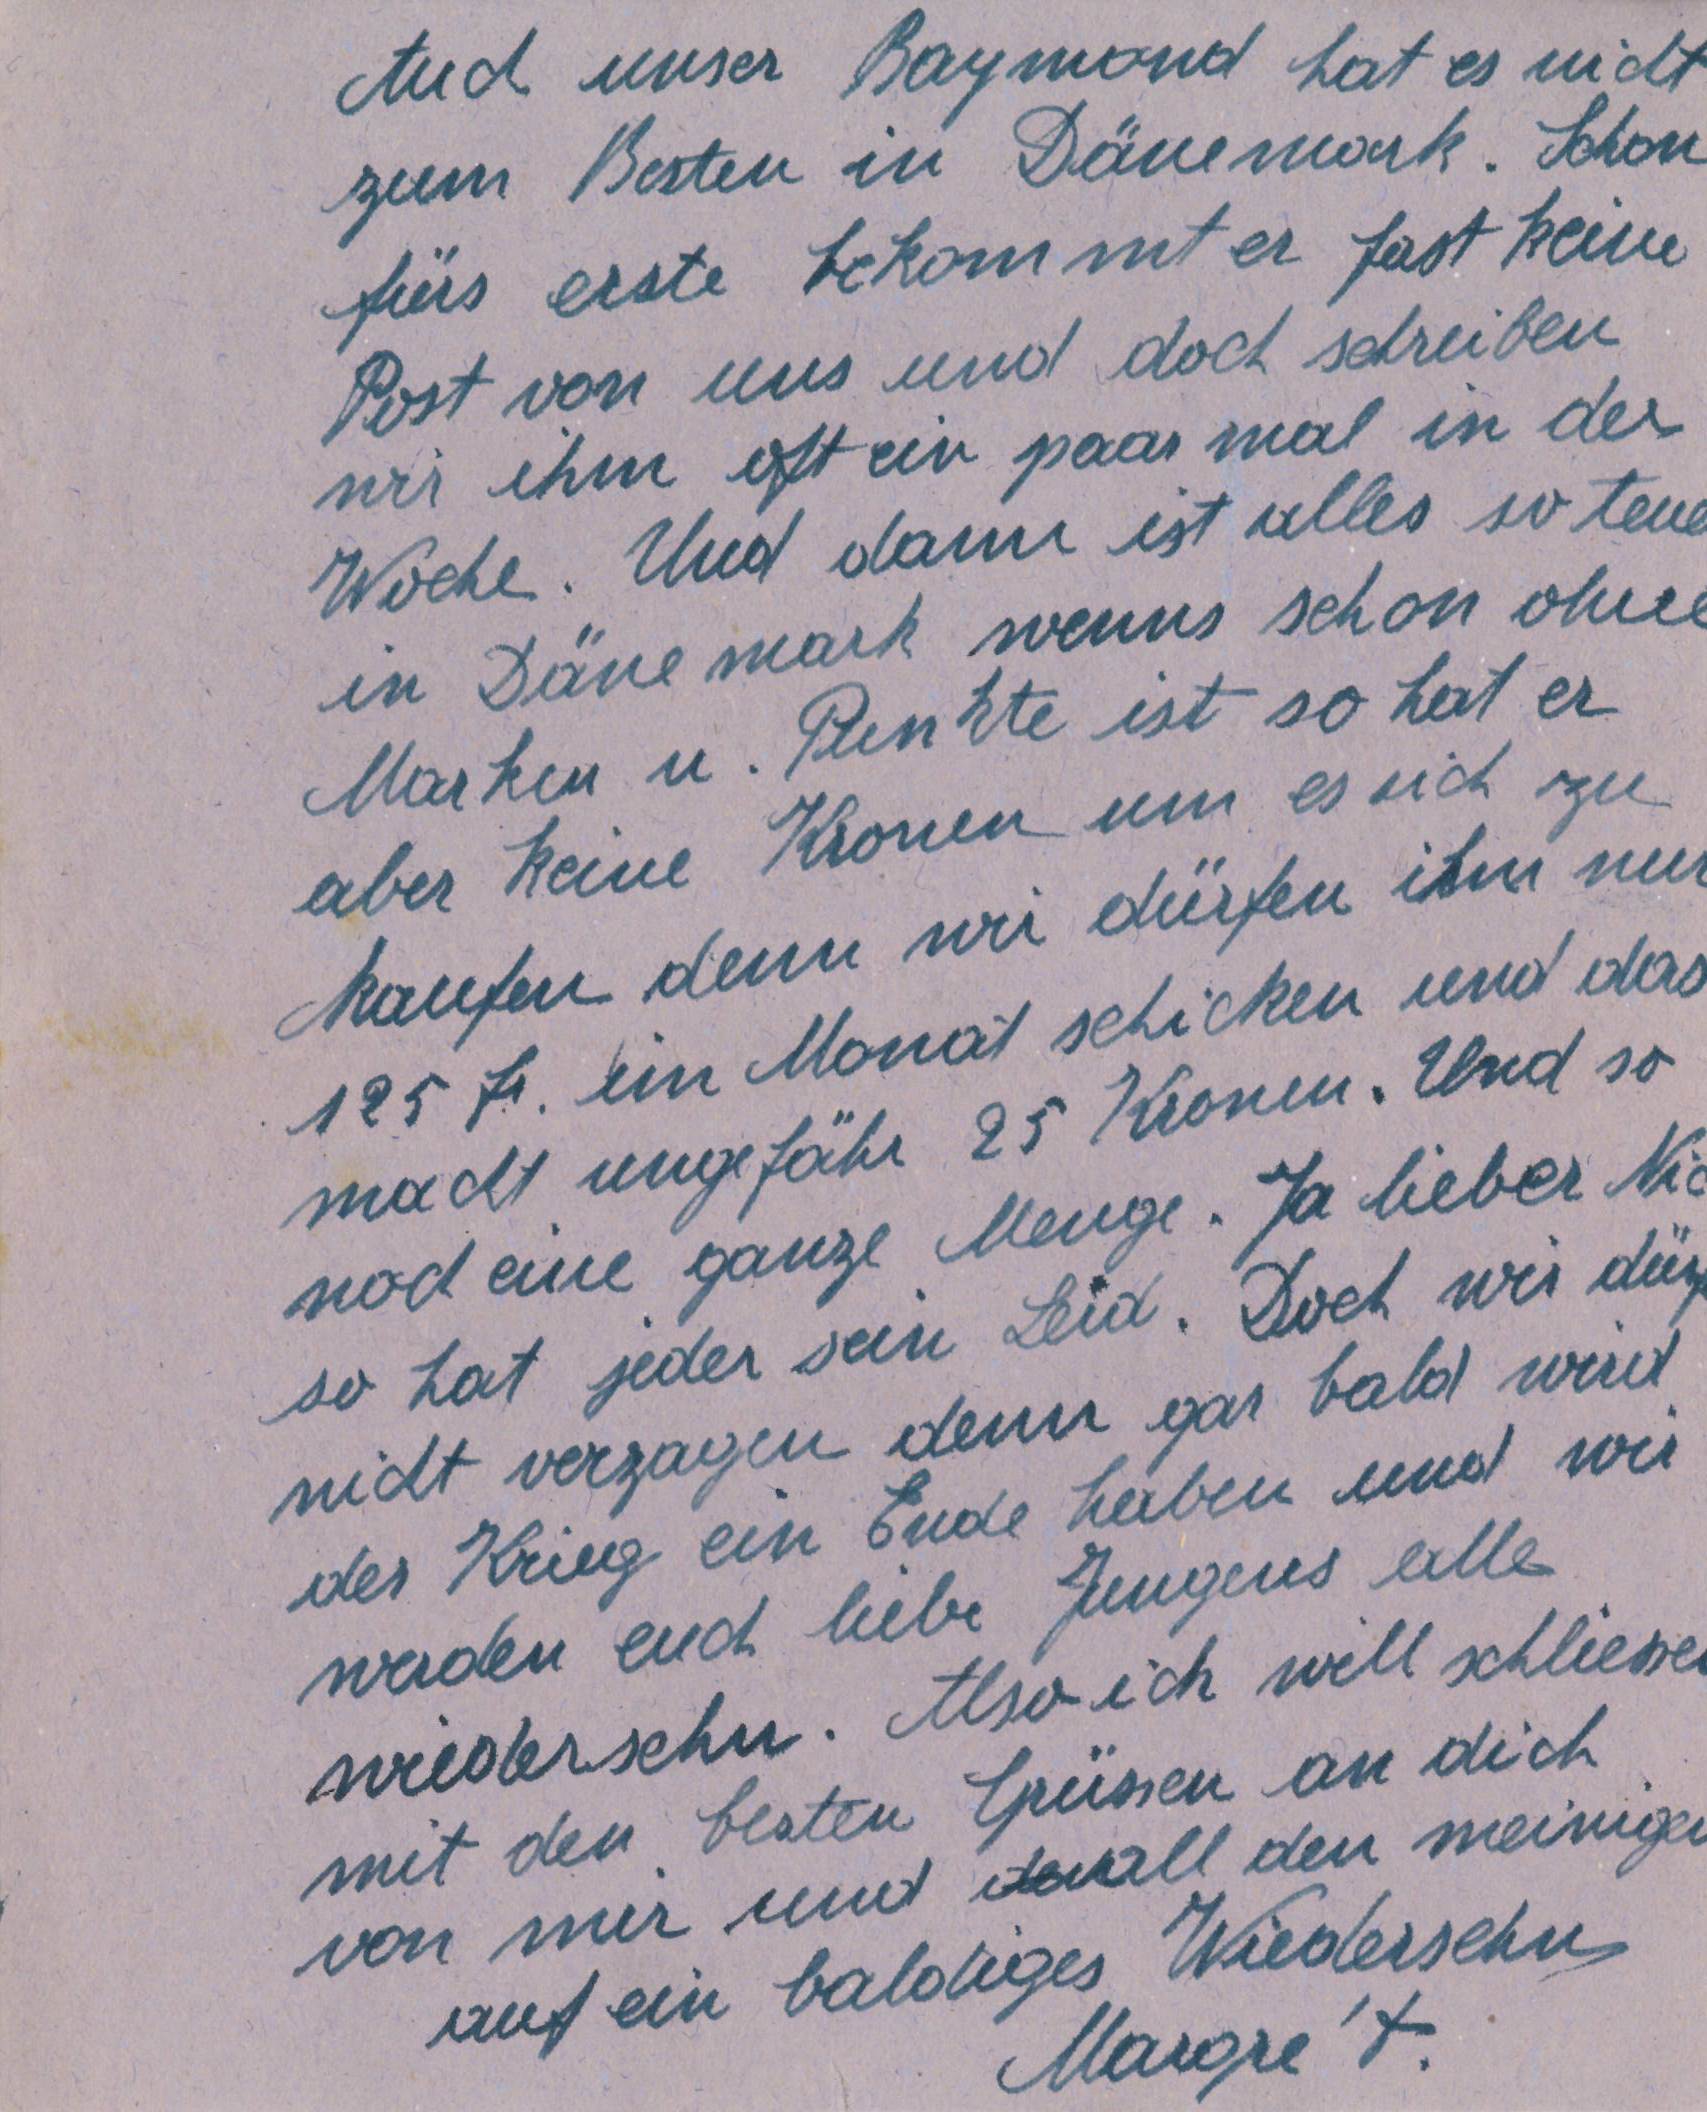 Auch unser Raymond hat es nicht
zum Besten in Dänemark. Schon
fürs erste bekommt er fast keine
Post von uns und doch schreiben
wir ihm oft ein paar mal in der
Woche. Und dann ist alles so teue
in Dänemark wenns schon ohne
Marken u. Punkte ist so hat er
aber keine Kronen um es sich zu
kaufen denn wir dürfen ihm nur
125 fr. ein Monat schicken und das
macht ungefähr 25 Kronen. Und so
noch eine ganze Menge. Ja lieber Nic
so hat jeder sein Leid. Doch wir dürf
nicht verzagen denn gar bald wird
der Krieg ein Ende haben und wir
werden euch liebe Jungens alle
wiedersehn. Also ich will schliessen
mit den besten Grüssen an dich
von mir und all den meinigen
auf ein baldiges Wiedersehn
Margre't.